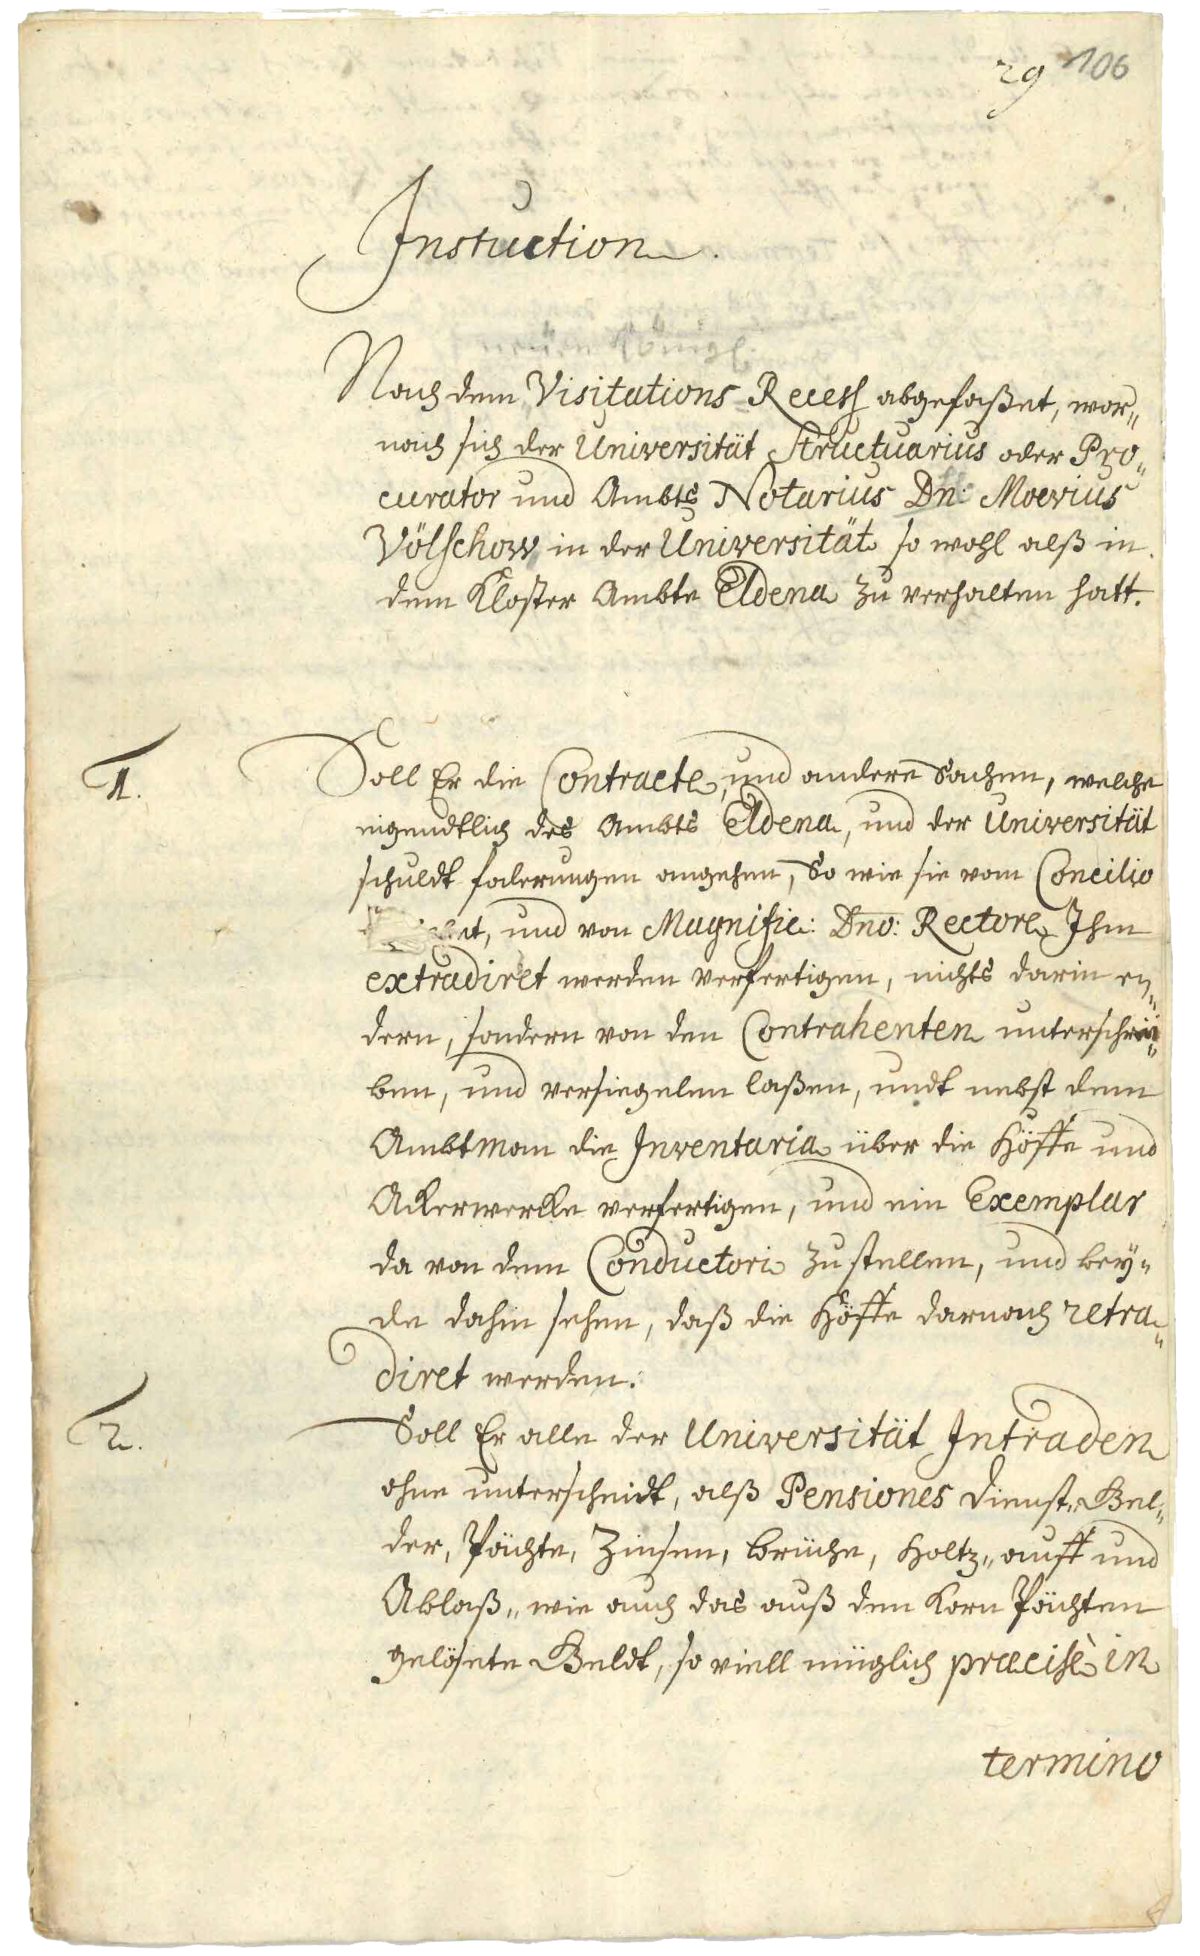 29 106
Instuction.
Nach dem Visitations Recess abgefaßet, wor„
nach sich der Universität Structuarius oder Pro„
curator und Ambts Notarius Dn: Moevius
Völschow, in der Universität so wohl alß in
dem Kloster Ambte Eldena zu verhalten hatt.
1.
Soll Er die Contracte, und andere Sachen, welche
eigendtlich des Ambts Eldena, und der Universität
schuldt foderungen angehen, So wie sie vom Concilio
et, und von Magnific: Dno: Rectore Ihm
extradiret werden verfertigen, nichts darin en„
dern, sondern von den Contrahenten unterschrei„
ben, und versiegelen laßen, undt nebst dem
Ambtman die Inventaria über die Höffe und
Ackerwercke verfertigen, und ein Exemplar
da von dem Conductori zu stellen, und bey„
de dahin sehen, daß die Höffe darnach retra„
diret werden.
2.
Soll Er alle der Universität Intraden
ohne unterscheidt, alß Pensiones Dienst„ Gel„
der, Pächte, Zinsen, brüche, Holtz„ auff und
Ablaß„ wie auch das auß den Korn Pächten
gelösete Geldt, so viell müglich præcisè in
termino